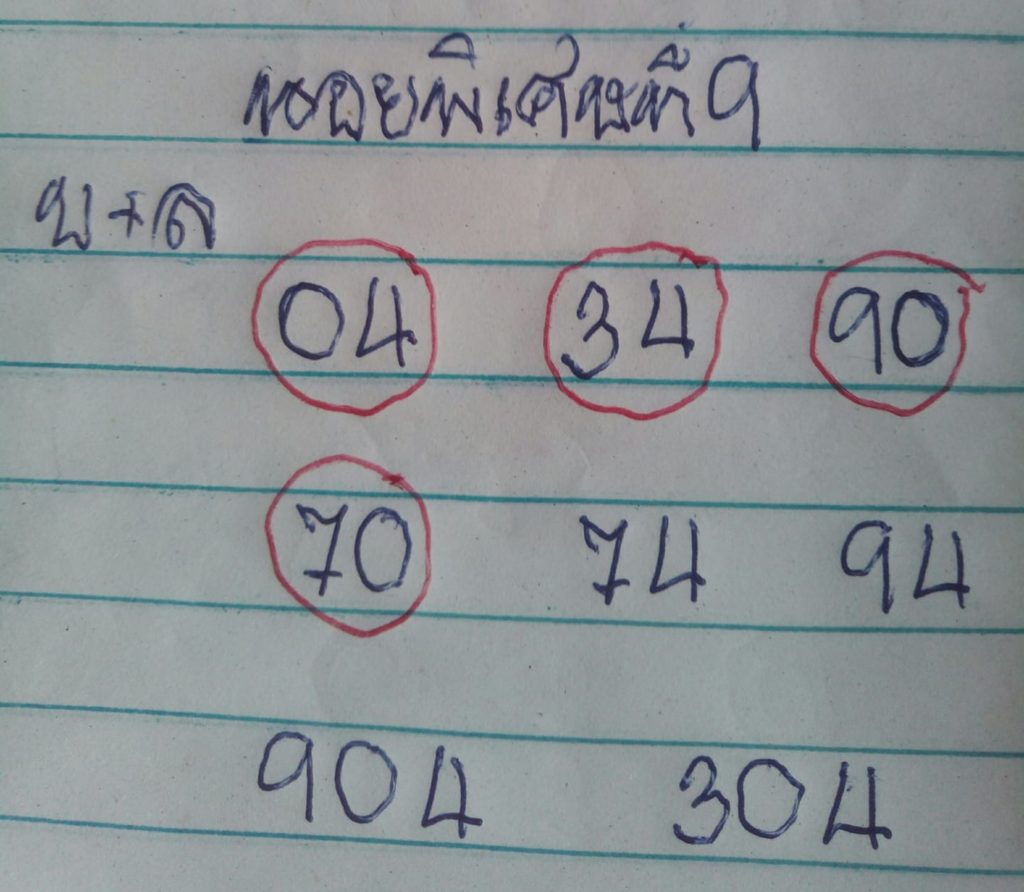 พิเศษที่ 9
บ+ล
04 34 90
70 74 94
904 304